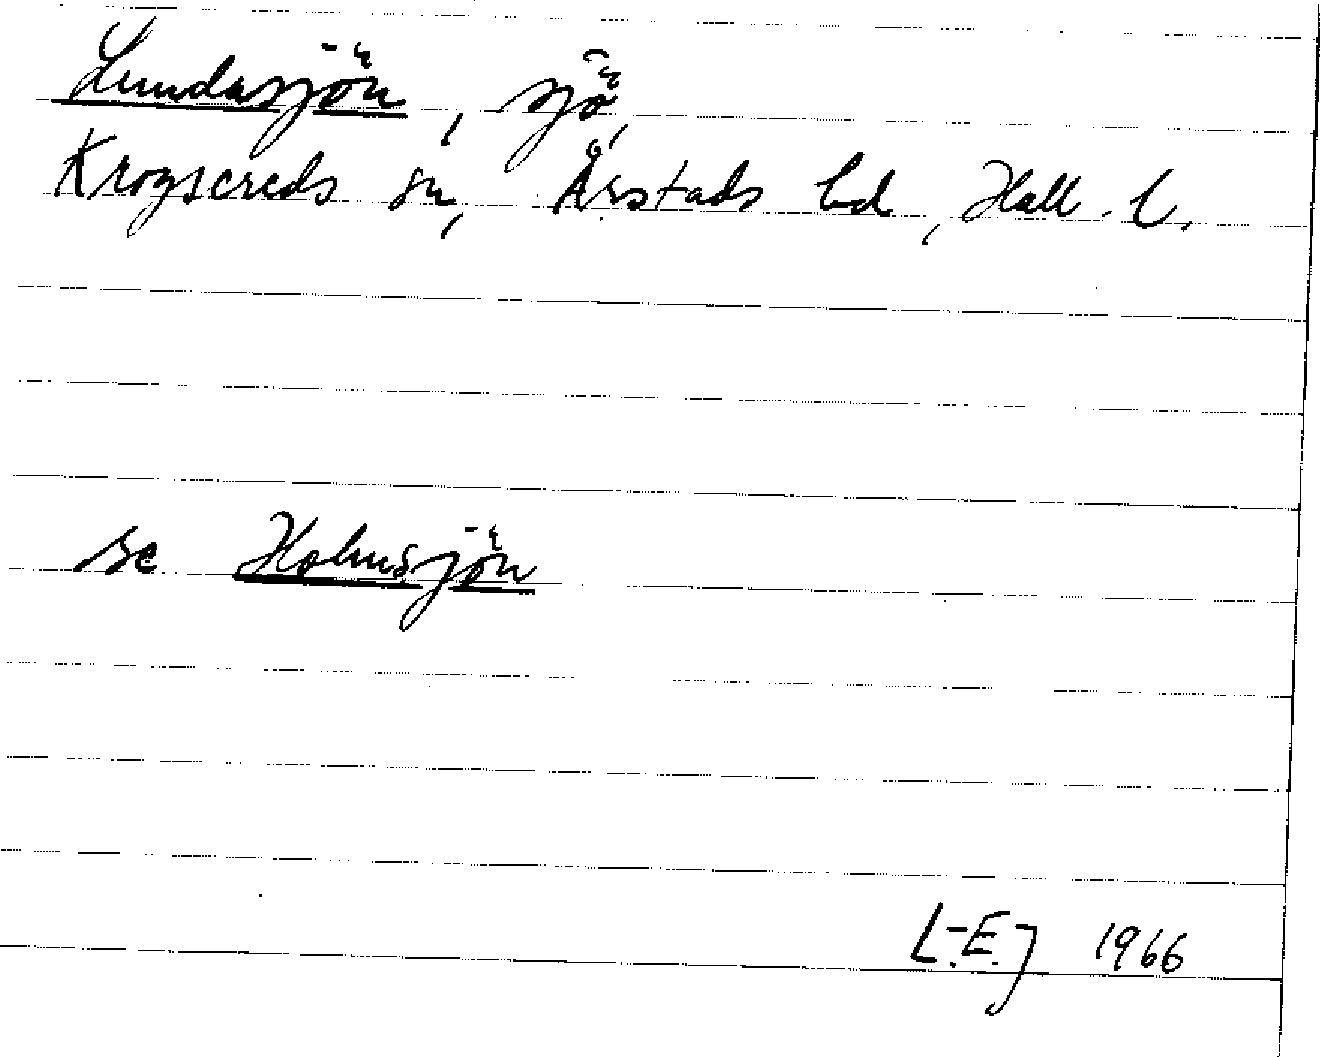 Lundasjön, sjö,
Krogsereds sn, Årstads hd, Hall. l.
se Holmsjön
L-E.J 1966